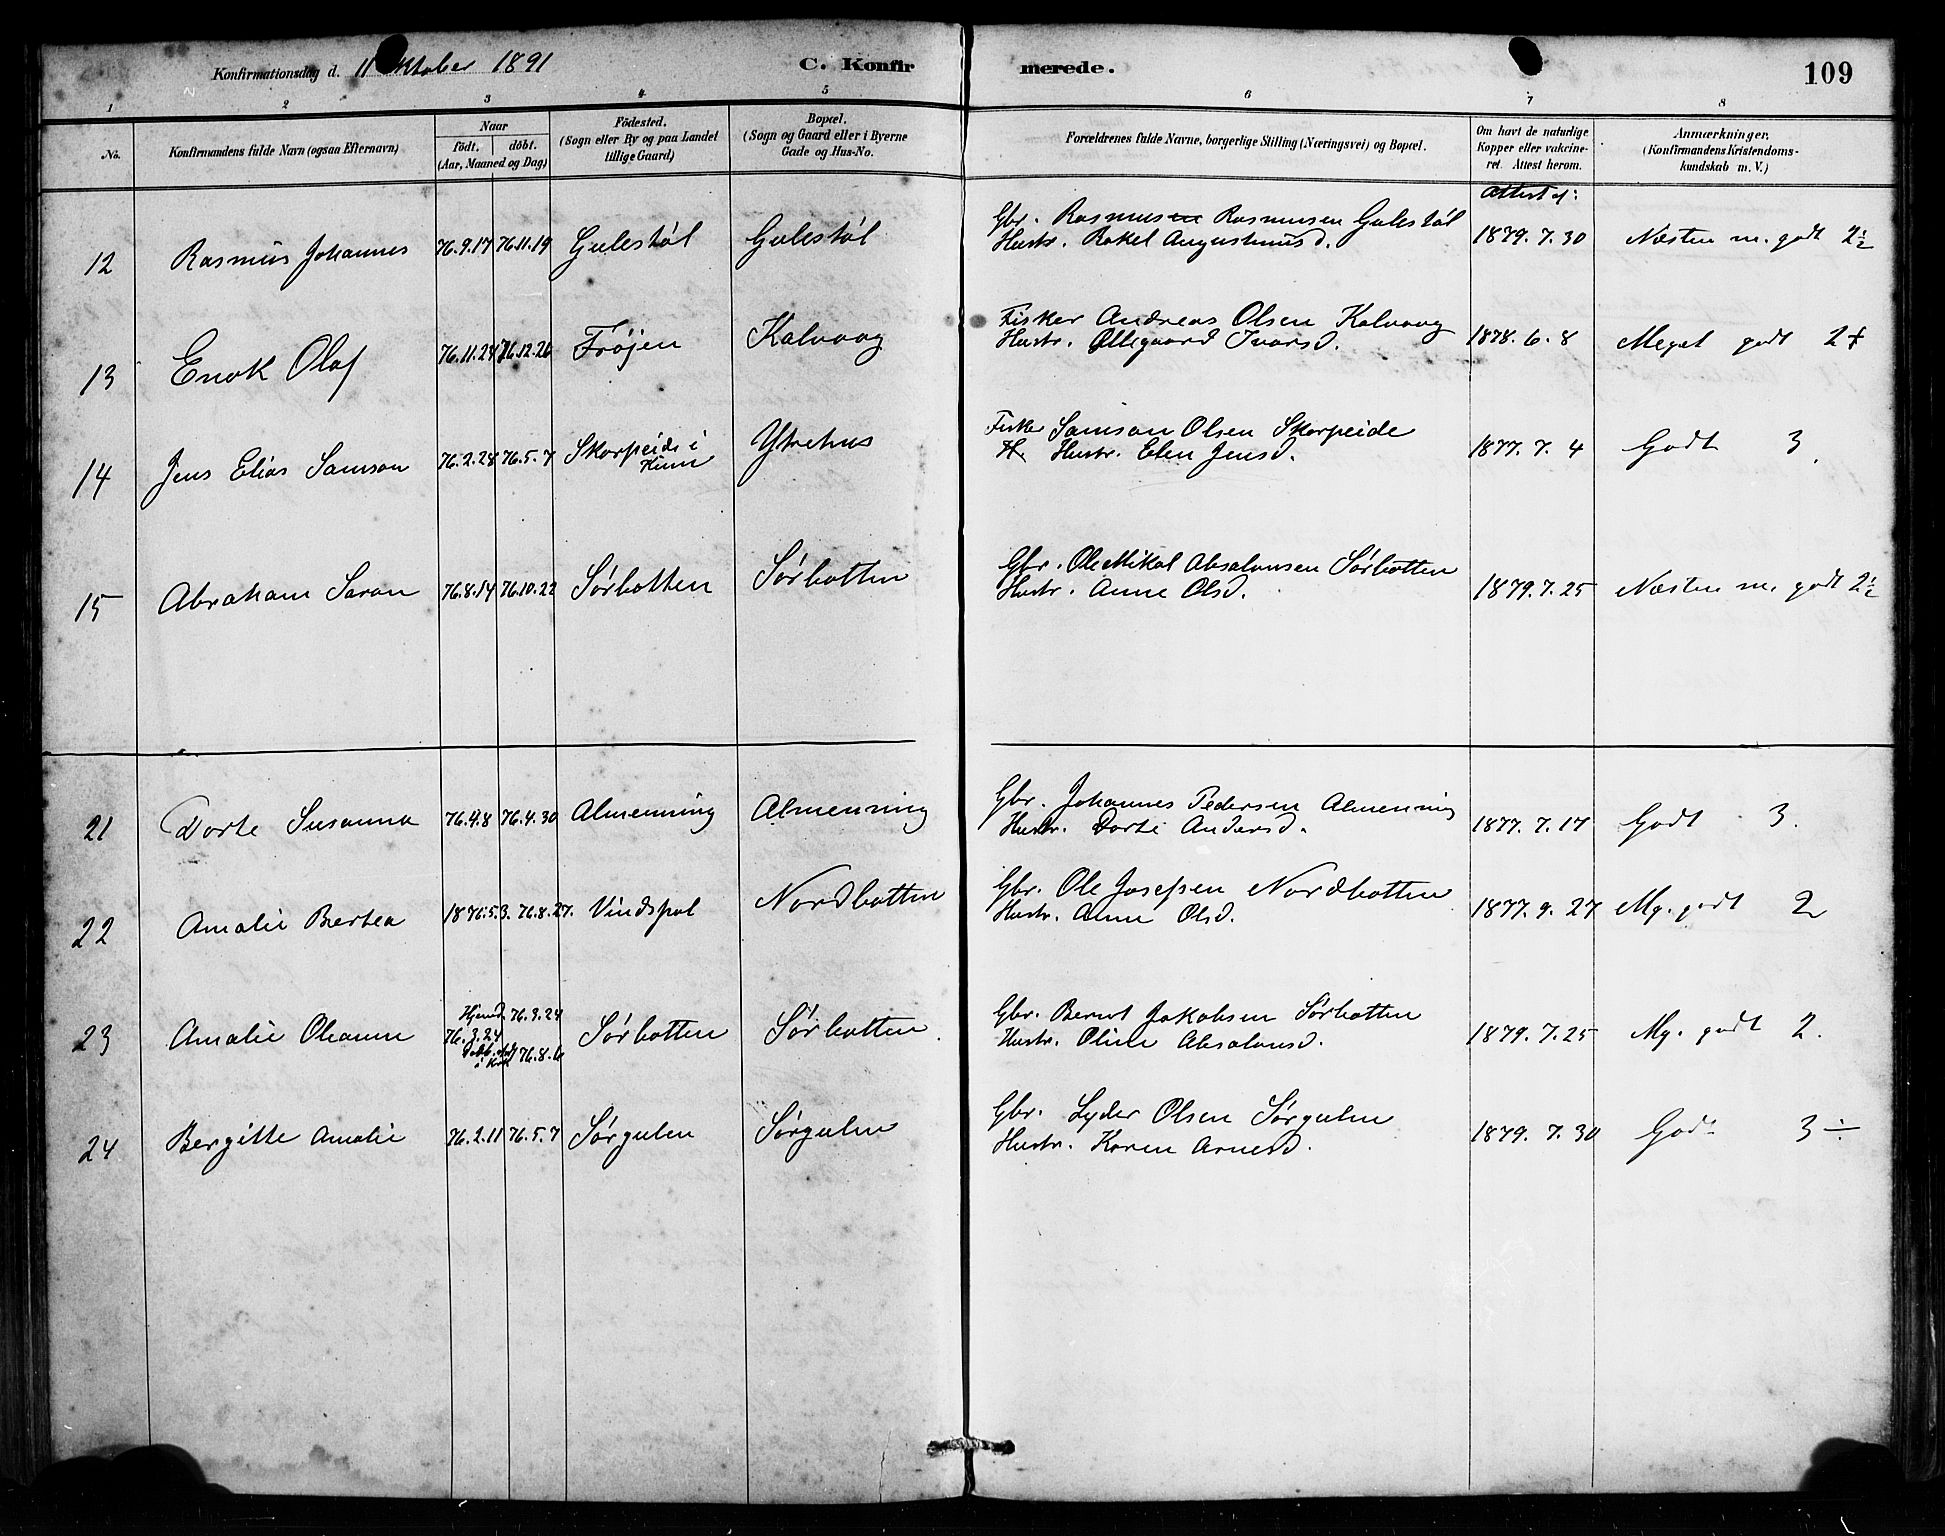 Konfirmationsdag d. 11 ktober 1891
C. Konfir merede.
109
1 2 3 4 5 6 7 8
No.
Konfirmandens fulde Navn (ogsaa Efternavn)
Naar
födt. döbt.
(Aar, Maaned og Dag)
Födested.
(Sogn eller By og paa Landet
tillige Gaard)
Bopæl.
(Sogn og Gaard eller i Byerne
Gade og Hus-No.
Forældrenes fulde Navne, borgerlige Stilling (Næringsvei) og Bopæl.
Om havt de naturlige
Kopper eller vakcine-
ret. Attest herom.
Anmærkninger.
(Konfirmandens Kristendoms-
kundskab m. V.)
Attest af:
12 Rasmus Johannes 76.9.17 76.11.19 Gulestöl Gulestöl Gbr. Rasmusen Rasmusen Gulestöl
Hustr. Rakel Augustinusd. 1879.7.30 Næsten m. godt 2½
13 Enok Olaf 76.11.24 76.12.26 Fröjen Kalvaag Fisker Andreas Olsen Kalvaag
Hustr. Ollegaard Ivarsd. 1878.6.8 Meget godt 2+
14 Jens Elias Samson 76.2.28 76.5.7 Skorpeide i
Kinn Ytrehus Fisker Samson Olsen Skorpeide
H. Hustr. Elen Jensd. 1877.7.4 Godt 3.
15 Abraham Saron 76.8.14 76.10.22 Sörbotten Sörbotten Gbr. Ole Mikal Absalonsen Sörbotten
Hustr. Anne Olsd. 1879.7.25 Næsten m. godt 2½
21 Dorte Susanna 76.4.8 76.4.30 Almenning Almenning Gbr. Johannes Pedersen Almenning
Hustr. Dorte Andersd. 1877.7.17 Godt 3.
22 Amalie Bertea 1876.5.3. 76.8.27. Vindspol Nordbotten Gbr. Ole Josefsen Nordbotten
Hustr. Anne Olsd. 1877.9.27 Mg. godt 2
23 Amalie Oleanne 76.3.24 Hjemd. 76.3.24
i Kirk 76.8.6 Sörbotten Sörbotten. Gbr. Bernt Jakobsen Sörbotten
Hustr. Oline Absalonsd. 1879.7.25 Mg. godt 2.
24 Bergitte Amalie 76.2.11 76.5.7 Sörgulen Sörgulen Gbr. Lyder Olsen Sörgulen
Hustr. Karen Arnesd. 1879.7.30 Godt 3÷